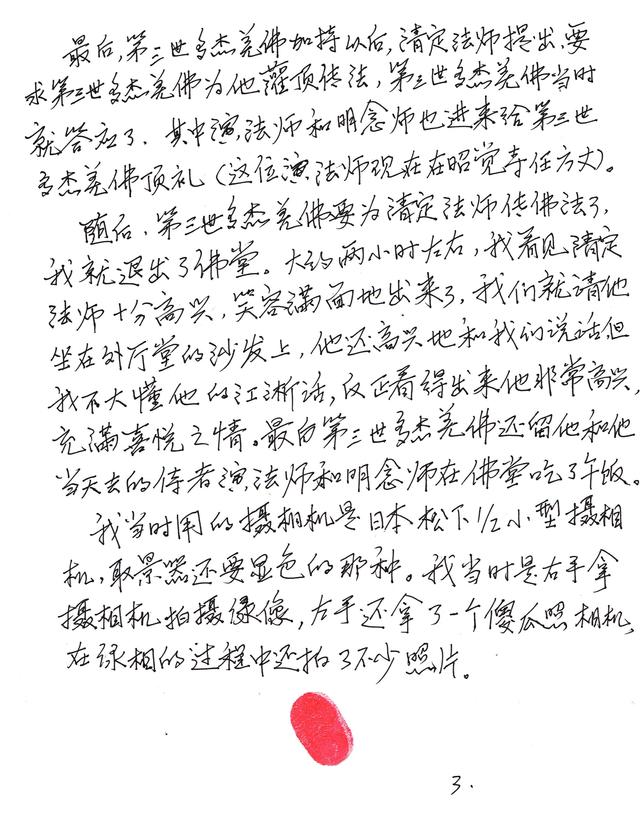 最后,第三世多杰羌佛加持以后,清定法师提出,要
求第三世多杰羌佛为他灌顶传法,第三世多杰羌佛当时
就答应了。其中演法师和明念师也进来给第三世
多杰羌佛顶礼(这位演法师现在在昭觉寺任方丈)。
随后,第三世多杰羌佛要为清定法师传佛法了,
我就退出了佛堂。大约两小时左右,我看见清定
法师十分高兴,笑容满面地出来了,我们就请他
坐在外厅堂的沙发上,他还高兴地和我们说话但
我不大懂他的江淅话,反正看得出来他非常高兴,
充满喜悦之情。最后第三世多杰羌佛还留他和他
当天去的侍者演法师和明念师在佛堂吃了午饭。
我当时用的摄相机是日本松下1/2小型摄相
机,取景器还要显色的那种。我当时是右手拿
摄相机拍摄录像,左手还拿了一个傻瓜照相机,
在录相的过程中还拍了不少照片。
3.